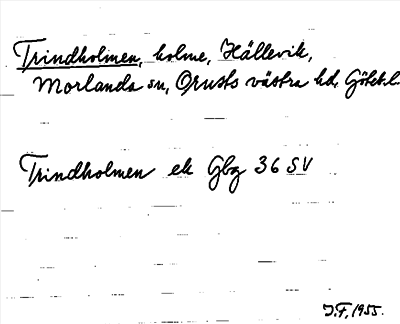 Trindholmen, holme, Hällevik,
Morlanda sn, Orusts västra hd, Göteb.l.
Trindholmen ek Gbg 36 SV
J.F, 1955.